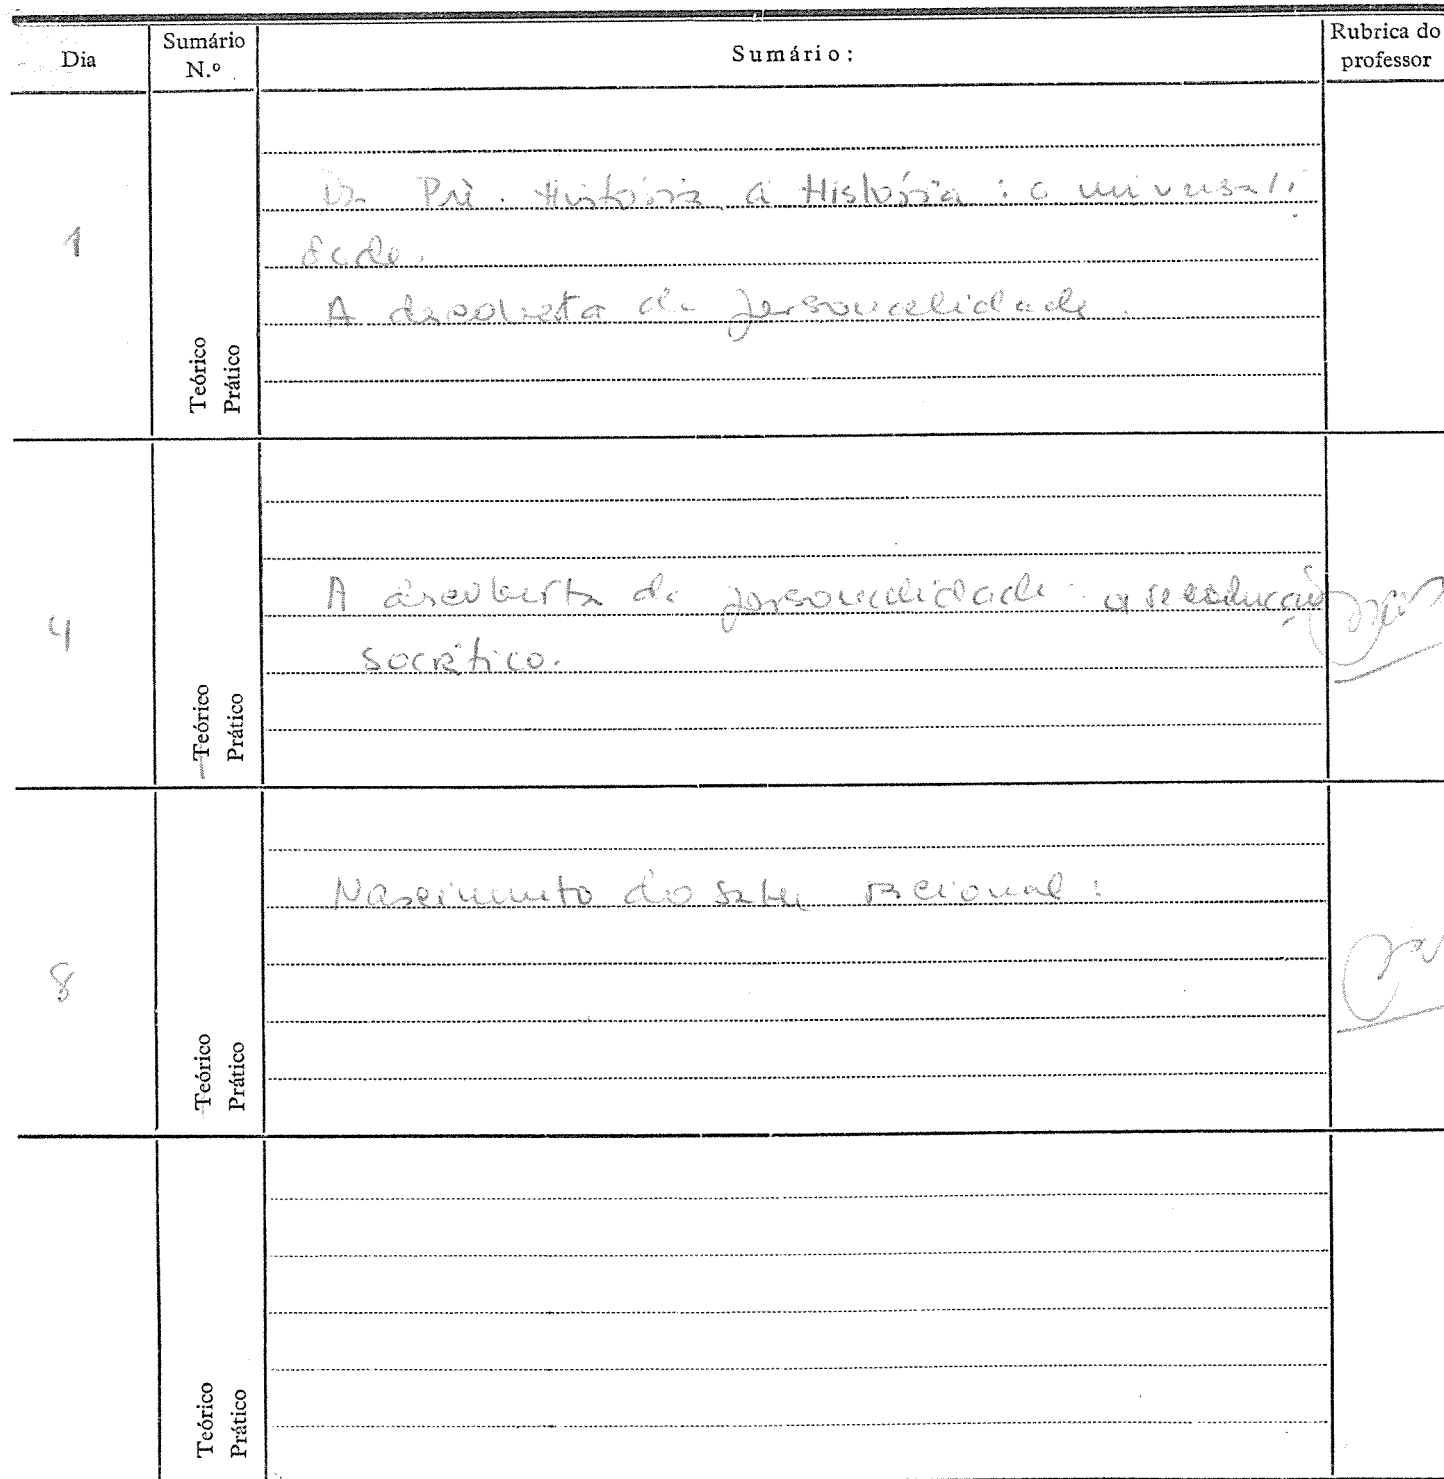 Dia
Sumário
N.º
Sumário:
Rubrica do
professor
1
Teórico
Prático
Da Pré-História à História: a universali
dade.
A descoberta da personalidade.
4
Teórico
Prático
A descoberta da personalidade: a
socrático.
8
Teórico
Prático
Nascimento do saber racional:
Teórico
Prático